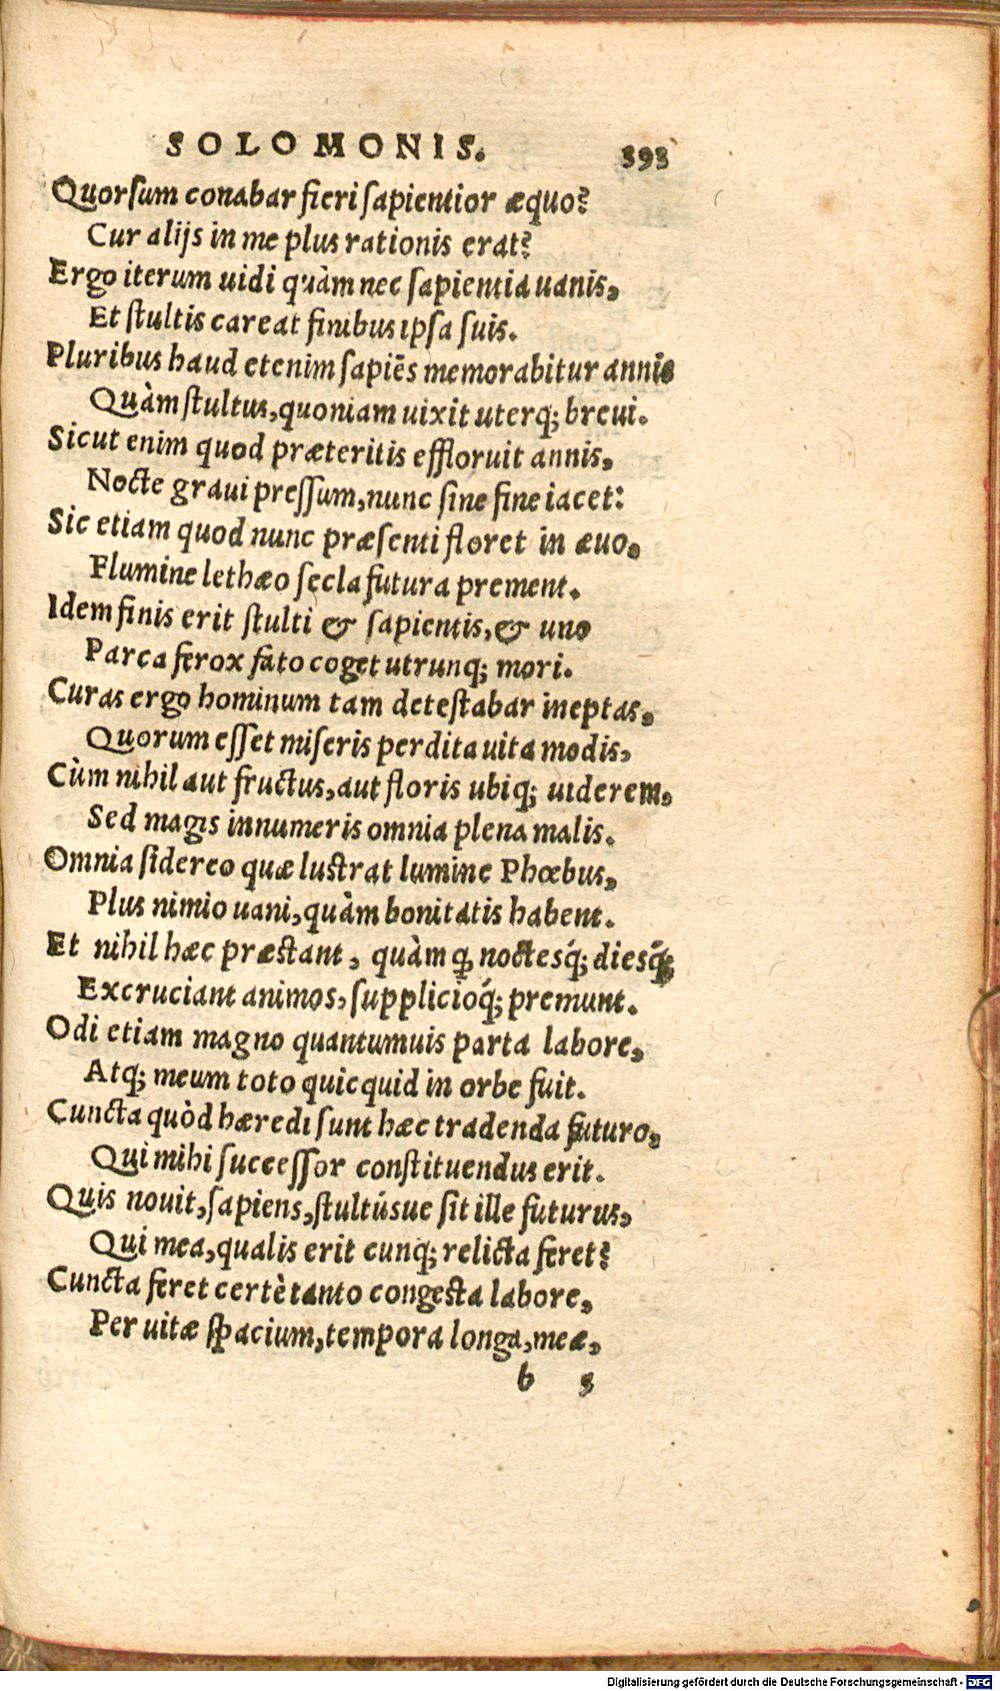 SOLOMONIS. 393
Quorſum conabar fieri ſapientior æquo?
Cur alijs in me plus rationis erat?
Ergo iterum uidi quàm nec ſapientia uanis,
Et ſtultis careat finibus ipſa ſuis.
Pluribus haud etenim ſapiẽs memorabitur annis
Quàm ſtultus, quoniam uixit uterq; breui.
Sicut enim quod præteritis effloruit annis,
Nocte graui preſſum, nunc ſine fine iacet:
Sic etiam quod nunc præſenti floret in æuo,
Flumine lethæo ſecla futura prement.
Idem finis erit ſtulti & ſapientis, & uno
Parca ferox fato coget utrunq; mori.
Curas ergo hominum tam deteſtabar ineptas,
Quorum eſſet miſeris perdita uita modis,
Cùm nihil aut fructus, aut floris ubiq; uiderem,
Sed magis innumeris omnia plena malis.
Omnia ſidereo quæ luſtrat lumine Phœbus,
Plus nimio uani, quàm bonitatis habent.
Et nihil hæc præſtant, quàm ꝙ noctesq́; diesq́;
Excruciant animos, ſupplicioq́; premunt.
Odi etiam magno quantumuis parta labore,
Atq; meum toto quicquid in orbe fuit.
Cuncta quòd hæredi ſunt hæc tradenda futuro,
Qui mihi ſucceſſor conſtituendus erit.
Quis nouit, ſapiens, ſtultúsue ſit ille futurus,
Qui mea, qualis erit cunq; relicta feret?
Cuncta feret certè tanto congeſta labore,
Per uitæ ſpacium, tempora longa, meæ,
b 3
Digitalisierung gefördert durch die Deutsche Forschungsgemeinschaft - DFG